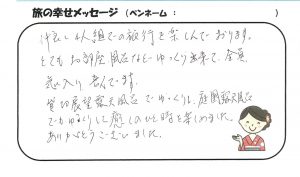 旅の幸せメッセージ（ペンネーム： ）
仲良し4人組での旅行を楽しんでおります。
とてもお部屋風呂などゆっくり出来て、全員
気に入り喜んでます。
貸切展望露天風呂でゆっくりし、庭園露天風呂
でもゆっくりして癒しのひと時を楽しめました。
ありがとうございました。